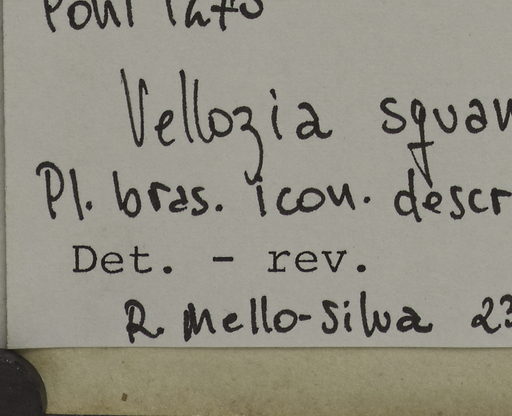 Vellozia squam
Pl. bras. icon. descr
Det. - rev.
R. Mello-Silva 23